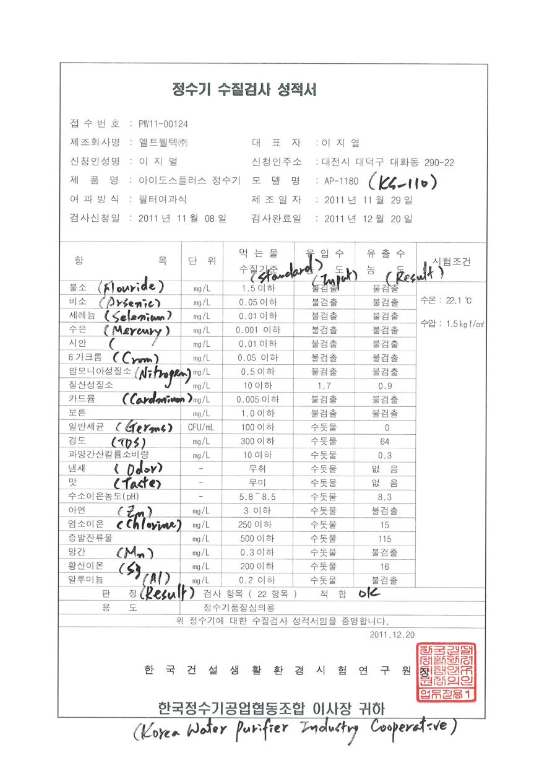 정수기 수질검사 성적서
접 수 번 호 : PW11-00124
제조회사명 : 엘트웰텍㈜ 대 표 자 : 이 지 열
신청인성명 : 이 지 열 신청인주소 : 대전시 대덕구 대화동 290-22
제 품 명 : 아이도스플러스 정수기 모 델 명 : AP-1180 (KS-110)
여 과 방 식 : 필터여과식 제 조 일 자 : 2011 년 11 월 29 일
검사신청일 : 2011 년 11 월 08 일 검사완료일 : 2011 년 12 월 20 일
항 목 단 위 먹 는 물 수질기준 (Standard) 유 입 수 농 도 (Input) 유 출 수 농 도 (Result) 시험조건
불소 (Flouride) mg/L 1.5 이하 불검출 불검출
비소 (Arsenic) mg/L 0.05 이하 불검출 불검출 수온 : 22.1 ℃
세레늄 (Selenium) mg/L 0.01 이하 불검출 불검출
수은 (Mercury) mg/L 0.001 이하 불검출 불검출 수압 : 1.5 kg f/㎠
시안 ( mg/L 0.01 이하 불검출 불검출
6가크롬 (Crom) mg/L 0.05 이하 불검출 불검출
암모니아성질소 (Nitrogen) mg/L 0.5 이하 불검출 불검출
질산성질소 mg/L 10 이하 1.7 0.9
카드뮴 (Cardmium) mg/L 0.005 이하 불검출 불검출
보론 mg/L 1.0 이하 불검출 불검출
일반세균 (Germs) CFU/mL 100 이하 수돗물 0
경도 (TDS) mg/L 300 이하 수돗물 64
과망간산칼륨소비량 mg/L 10 이하 수돗물 0.3
냄새 (Odor) - 무취 수돗물 없 음
맛 (Taste) - 무미 수돗물 없 음
수소이온농도(pH) - 5.8 ~ 8.5 수돗물 8.3
아연 (Zn) mg/L 3 이하 수돗물 불검출
염소이온 (Chlorine) mg/L 250 이하 수돗물 15
증발잔류물 mg/L 500 이하 수돗물 115
망간 (Mn) mg/L 0.3 이하 수돗물 불검출
황산이온 (Sg mg/L 200 이하 수돗물 16
알루미늄 (Al) mg/L 0.2 이하 수돗물 불검출
판 정 (Result) 검사 항목 ( 22 항목 ) 적 합 OK
용 도 정수기품질심의용
위 정수기에 대한 수질검사 성적서임을 증명합니다.
2011.12.20
한 국 건 설 생 활 환 경 시 험 연 구 원 장
한국정수기공업협동조합 이사장 귀하
(Korea Water Purifier Industry Cooperative)